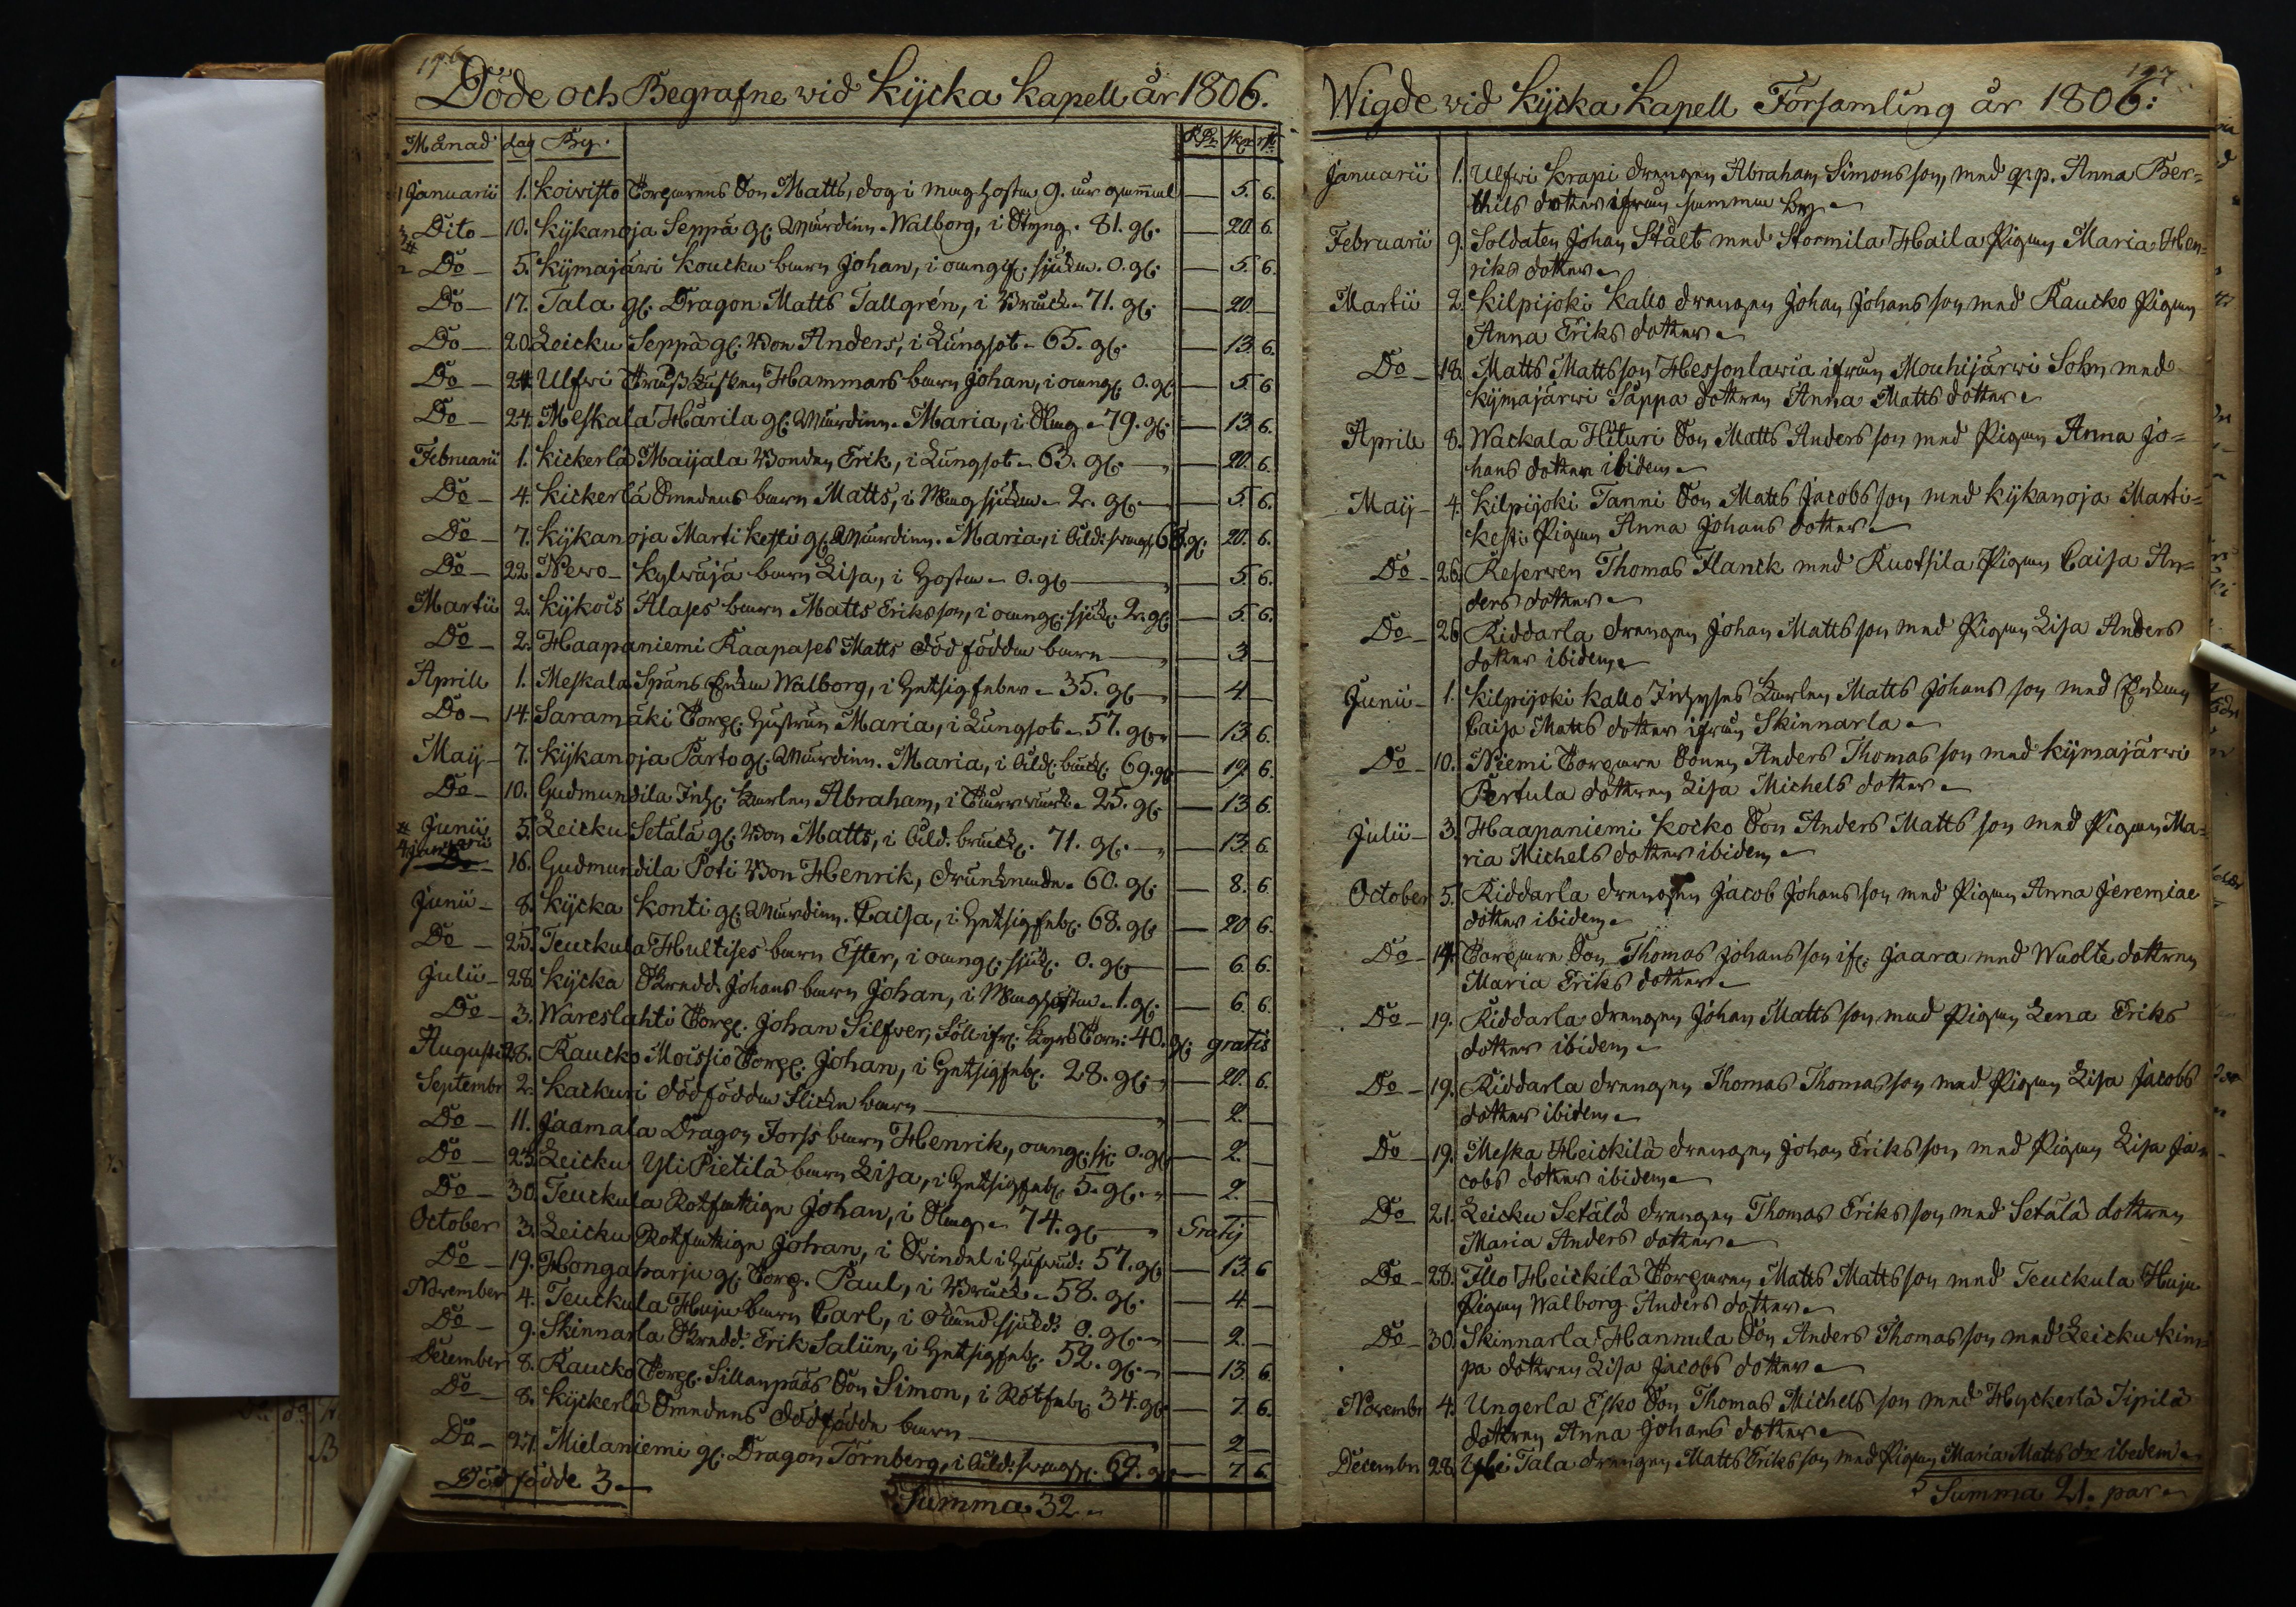 196
Döde och Begrafne wid Kycka Kapell år 1806.
Månad dag By. RD sk: rst
1 Januarii 1. Koivisto Torparens Son Matts, dog i maghosta 9. år gammal — 5. 6.
3 Dito — 10. Kykanoja Seppä gl: Wärdinn. Walborg, i Styng. 81. gl. — 20. 6.
2 Do — 5. Kymajärwi Koucku barn Johan, i oangif: sjukd. 0. gl: — 5. 6.
Do — 17. Tala gl: Dragon Matts Tallgrén, i Bråck 71. gl: — 20. —
Do — 20. Leicku Seppä gl: Bon Anders, i Lungsot 65. gl. — 13. 6.
Do — 24. Ulfwi Hammars barn Johan, i oang: 0. gl — 5. 6
Do — 24. Meskala Härila gl: Wärdinn. Maria, i Slag 79. gl: — 13. 6.
Februarii 1. Kickerlä Maijala Bonden Erik, i Lungsot 63. gl. — 20. 6.
Do — 4. Kickerlä Smedens barn Matts, i Magsjukan 2. gl. — 5. 6.
Do — 7. Kykanoja Martikesti gl: Wärdinn. Maria, i Åld: gl: 20. 6.
Do — 22. Newo — Kylwäjä barn Lisa, i Hosta 0. gl — 5. 6.
Martii 2. Kykois Alases barn Matts Eriksson, i oang: sjuk: 2. gl — 5. 6.
Do — 2. Haapaniemi Raapases Matts dödfödda barn — 3. —
Aprill 1. Meskala Späns Enka Walborg, i Hetsigfeber 35. gl — 4. —
Do — 14. Saramäki Torp: Hustrun Maria, i Lungsot 57. gl — 13. 6.
Maij — 7. Kykanoja Parto gl: Wärdinn. Maria, i Åld: bräckl: 69. gl — 19. 6.
Do — 10. Gudmundila Inh: Karlen Abraham, i 25. gl. — 13. 6.
# Junii 5. Leicku Setälä gl: Bon Matts, i Åld. bräckl. 71. gl. — 13. 6.
4 Januarii 16. Gudmundila Poti Bon Henrik, drunknade 60. gl: — 8. 6
Junii — 8. Kycka Konti gl: Wärdinn. Caisa, i Hetsigfeb: 68. gl: — 20. 6.
Do — 25. Teuckula Hultises barn Ester, i oang: sjuk: 0. gl — 6. 6.
Julii — 28. Kycka Skredd. Johans barn Johan, i Maghosta 1. gl. — 6. 6.
Do — 3. Wareslahti Torp: Johan Silfwer, föll ifr: Kyrk Torn: 40. gl: gratis
Augusti 28. Raucko Moissio Torp: Johan, i Hetsigfeb: 28. gl: — 20. 6.
Septembr 2. Kackuri dödfödda flicka barn — 2. —
Do — 11. Jaamala Dragon Forss barn Henrik, oang: sj: 0. gl — 2. —
Do — 23. Leicku Yli Pietilä barn Lisa, i Hetsigfeb: 5. gl. — 2. —
Do — 30. Teuckula Rotfattige Johan, i Slag 74. gl — Gratis
October 3. Leicku Rotfattige Johan, i Swindel i Hufwud: 57. gl — 13. 6
Do — 19. Hongaharju gl: Torp. Paul, i Bråck 58. gl. — 4. —
November 4. Teuckula Huju barn Carl, i okänd sjukd: 0. gl. — 2. —
Do — 9. Skinnarla Skredd: Erik Salün, i Hetsigfeb: 52. gl. — 13. 6.
December 8. Raucko Torp: Sillanpääs Son Simon, i Rötfeb: 34. gl — 7. 6.
Do — 8. Kyckerlä Smedens dödfödde barn — 2 —
Do — 27. Mielaniemi gl: Dragon Törnberg, i Åld: 69. gl — 7 6.
Dödfödde 3 —
Summa 32 —
197
Wigde wid Kycka Kapell Församling år 1806:
Januarii 1. Ulfwi Krapi drengen Abraham Simonsson, med Anna Ber=
thils dotter ifrån samma by
Februarii 9. Soldaten Johan Stålt med Stormila Haila Pigan Maria Hen=
riks dotter
Martii 2. Kilpijoki Kallo drengen Johan Johansson med Raucko Pigan
Anna Eriks dotter
Do — 18. Matts Mattsson Hessonlawia ifrån Mouhijärwi Sokn med
Kymajärwi Säppä dottren Anna Matts dotter
Aprill 8. Wackala Hituri Son Matts Andersson med Pigan Anna Jo=
hans dotter ibidem
Maij — 4. Kilpijoki Tanni Son Matts Jacobsson med Kykanoja Marti=
kesti Pigan Anna Johans dotter
Do — 26. Reserven Thomas Flanck med Ruotsila Pigan Caisa An=
ders dotter
Do — 26 Riddarla drengen Johan Mattsson med Pigan Lisa Anders
dotter ibidem
Junii — 1. Kilpijoki Kallo Inhyses Karlen Matts Johansson med Enkan
Caisa Matts dotter ifrån Skinnarla
Do — 10. Niemi Torpare Sonen Anders Thomasson med Kymajärwi
Pertula dottren Lisa Michels dotter
Julii — 3. Haapaniemi Kocko Son Anders Mattsson med Pigan Ma=
ria Michels dotter ibidem
October 5. Riddarla drengen Jacob Johansson med Pigan Anna Jeremiae
dotter ibidem
Do — 14. Torpare Son Thomas Johansson if: Jaara med Wuolte dottren
Maria Eriks dotter
Do — 19. Riddarla drengen Johan Mattsson med Pigan Lena Eriks
dotter ibidem
Do — 19. Riddarla drengen Thomas Thomasson med Pigan Lisa Jacobs
dotter ibidem
Do — 19. Meska Heickilä drengen Johan Eriksson, med Pigan Lisa Ja=
cobs dotter ibidem
Do 21. Leicku Setälä drengen Thomas Eriksson med Setälä dottren
Maria Anders dotter
Do — 28. Illo Heickilä Torparen Matts Mattsson med Teuckula Huju
Pigan Walborg Anders dotter
Do — 30. Skinnarla Hannula Son Anders Thomasson med Leicku Kim=
pa dottren Lisa Jacobs dotter
Novembr 4. Ungerla Esko Son Thomas Michelsson med Hyckerlä Sipilä
dottren Anna Johans dotter
Decembr 28. Yli Tala drengen Matts Eriksson med Pigan Maria Matts dr ibidem
Summa 21. par